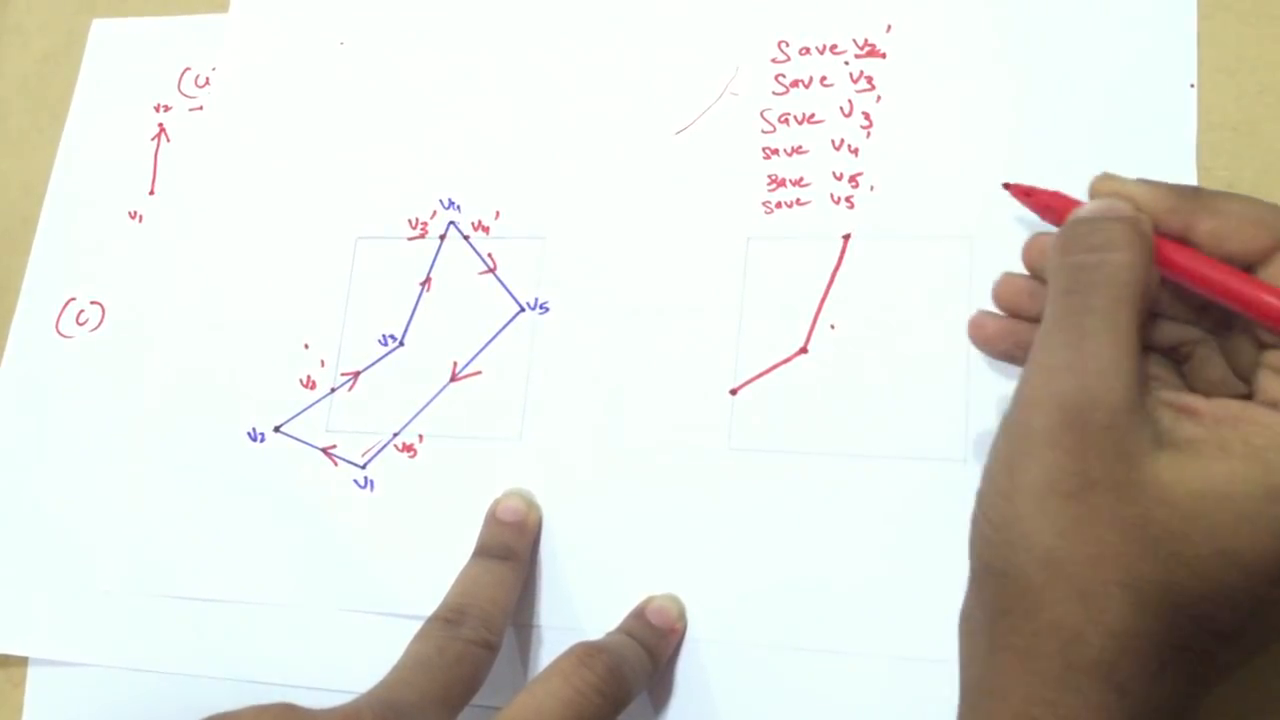 v2
v1
(C)
v4
v3'
v4'
v5
v3
v2'
v2
v5'
v1
Save v2'
Save v3
Save v3'
save v4'
save v5
save v5'